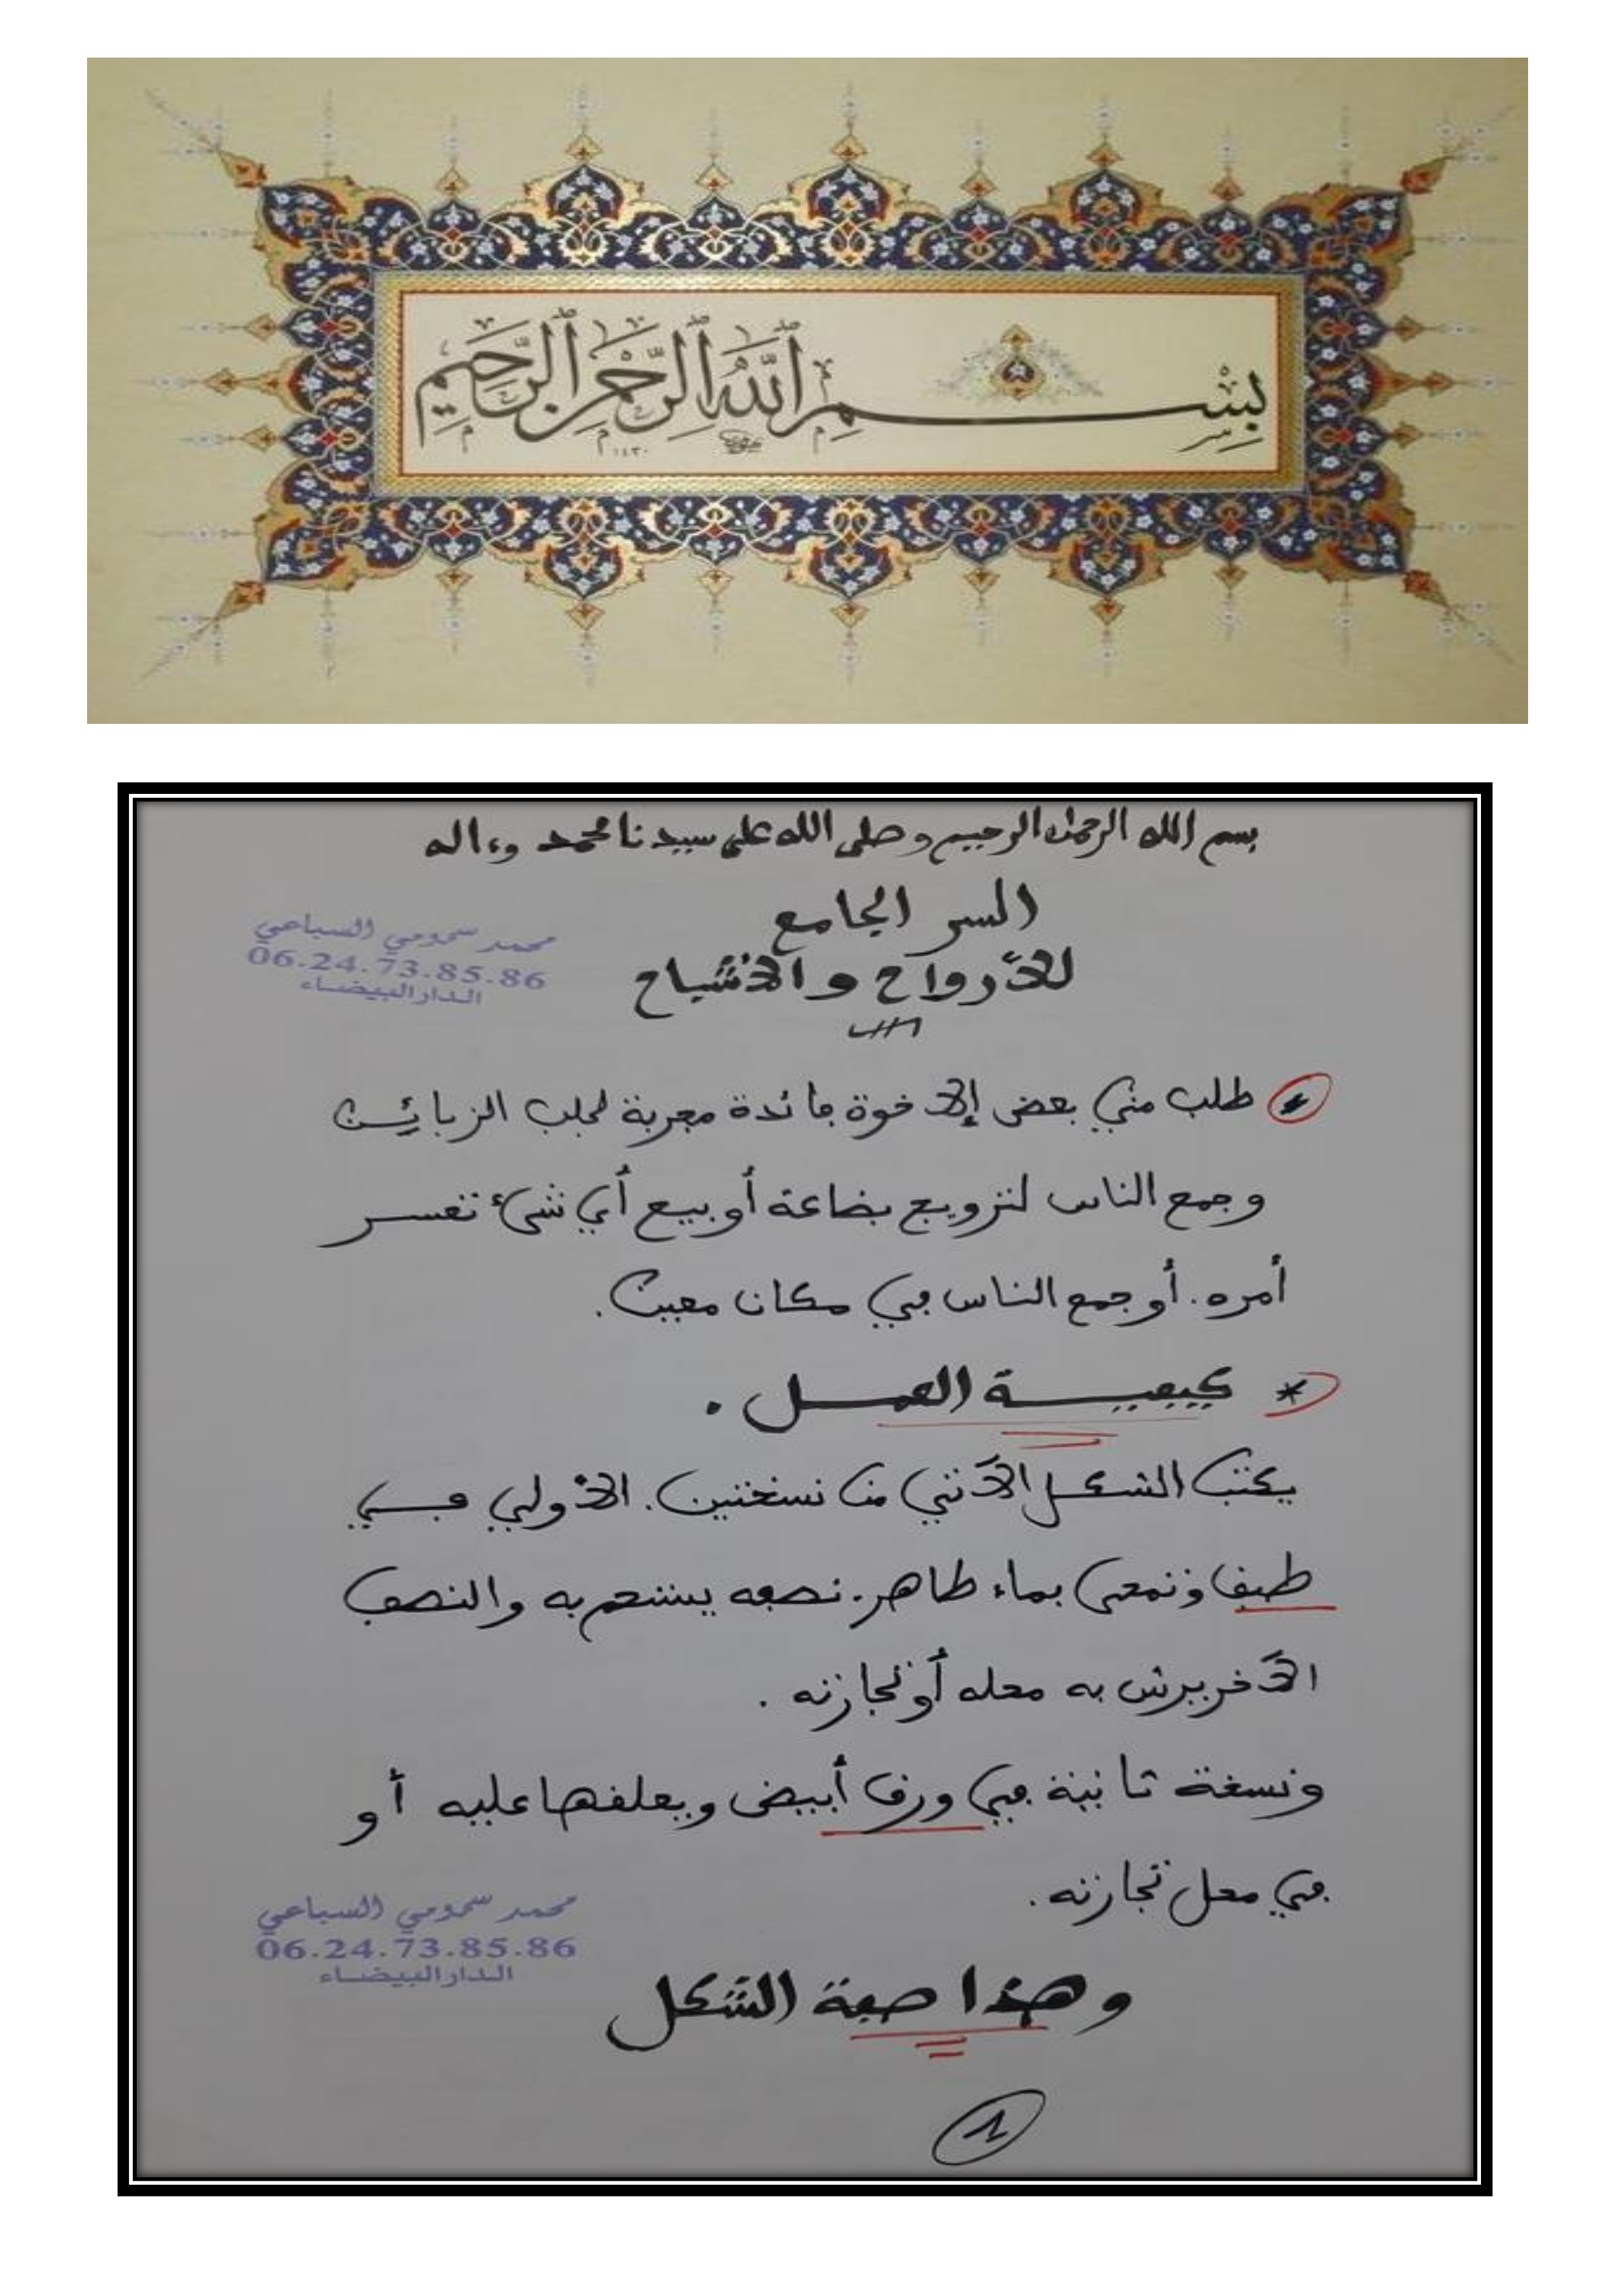 بِسْمِ ٱللَّهِ ٱلرَّحْمَٰنِ ٱلرَّحِيمِ
١٤٣٠
بسم الله الرحمن الرحيم و صلى الله على سيدنا محمد وءاله
السر الجامع
للأرواح والأشباح
محمد سحمومي السباعي
06.24.73.85.86
الدار البيضاء
* طلب مني بعض الإخوة فائدة مجربة لجلب الزبائن
وجمع الناس لترويج بضاعة أو بيع أي شيء تعسر
أمره. أو جمع الناس في مكان معين.
* كيفيــة العمــل .
يكتب الشكل الآتي من نسختين. الأولى فــي
طبق وتمحى بماء طاهر. نصفه يستحم به والنصف
الآخر يرش به محله أو تجارته .
ونسخة ثانية في ورق أبيض ويعلقها عليه أو
في محل تجارته.
محمد سحمومي السباعي
06.24.73.85.86
الدار البيضاء
وهذا صفة الشكل
1